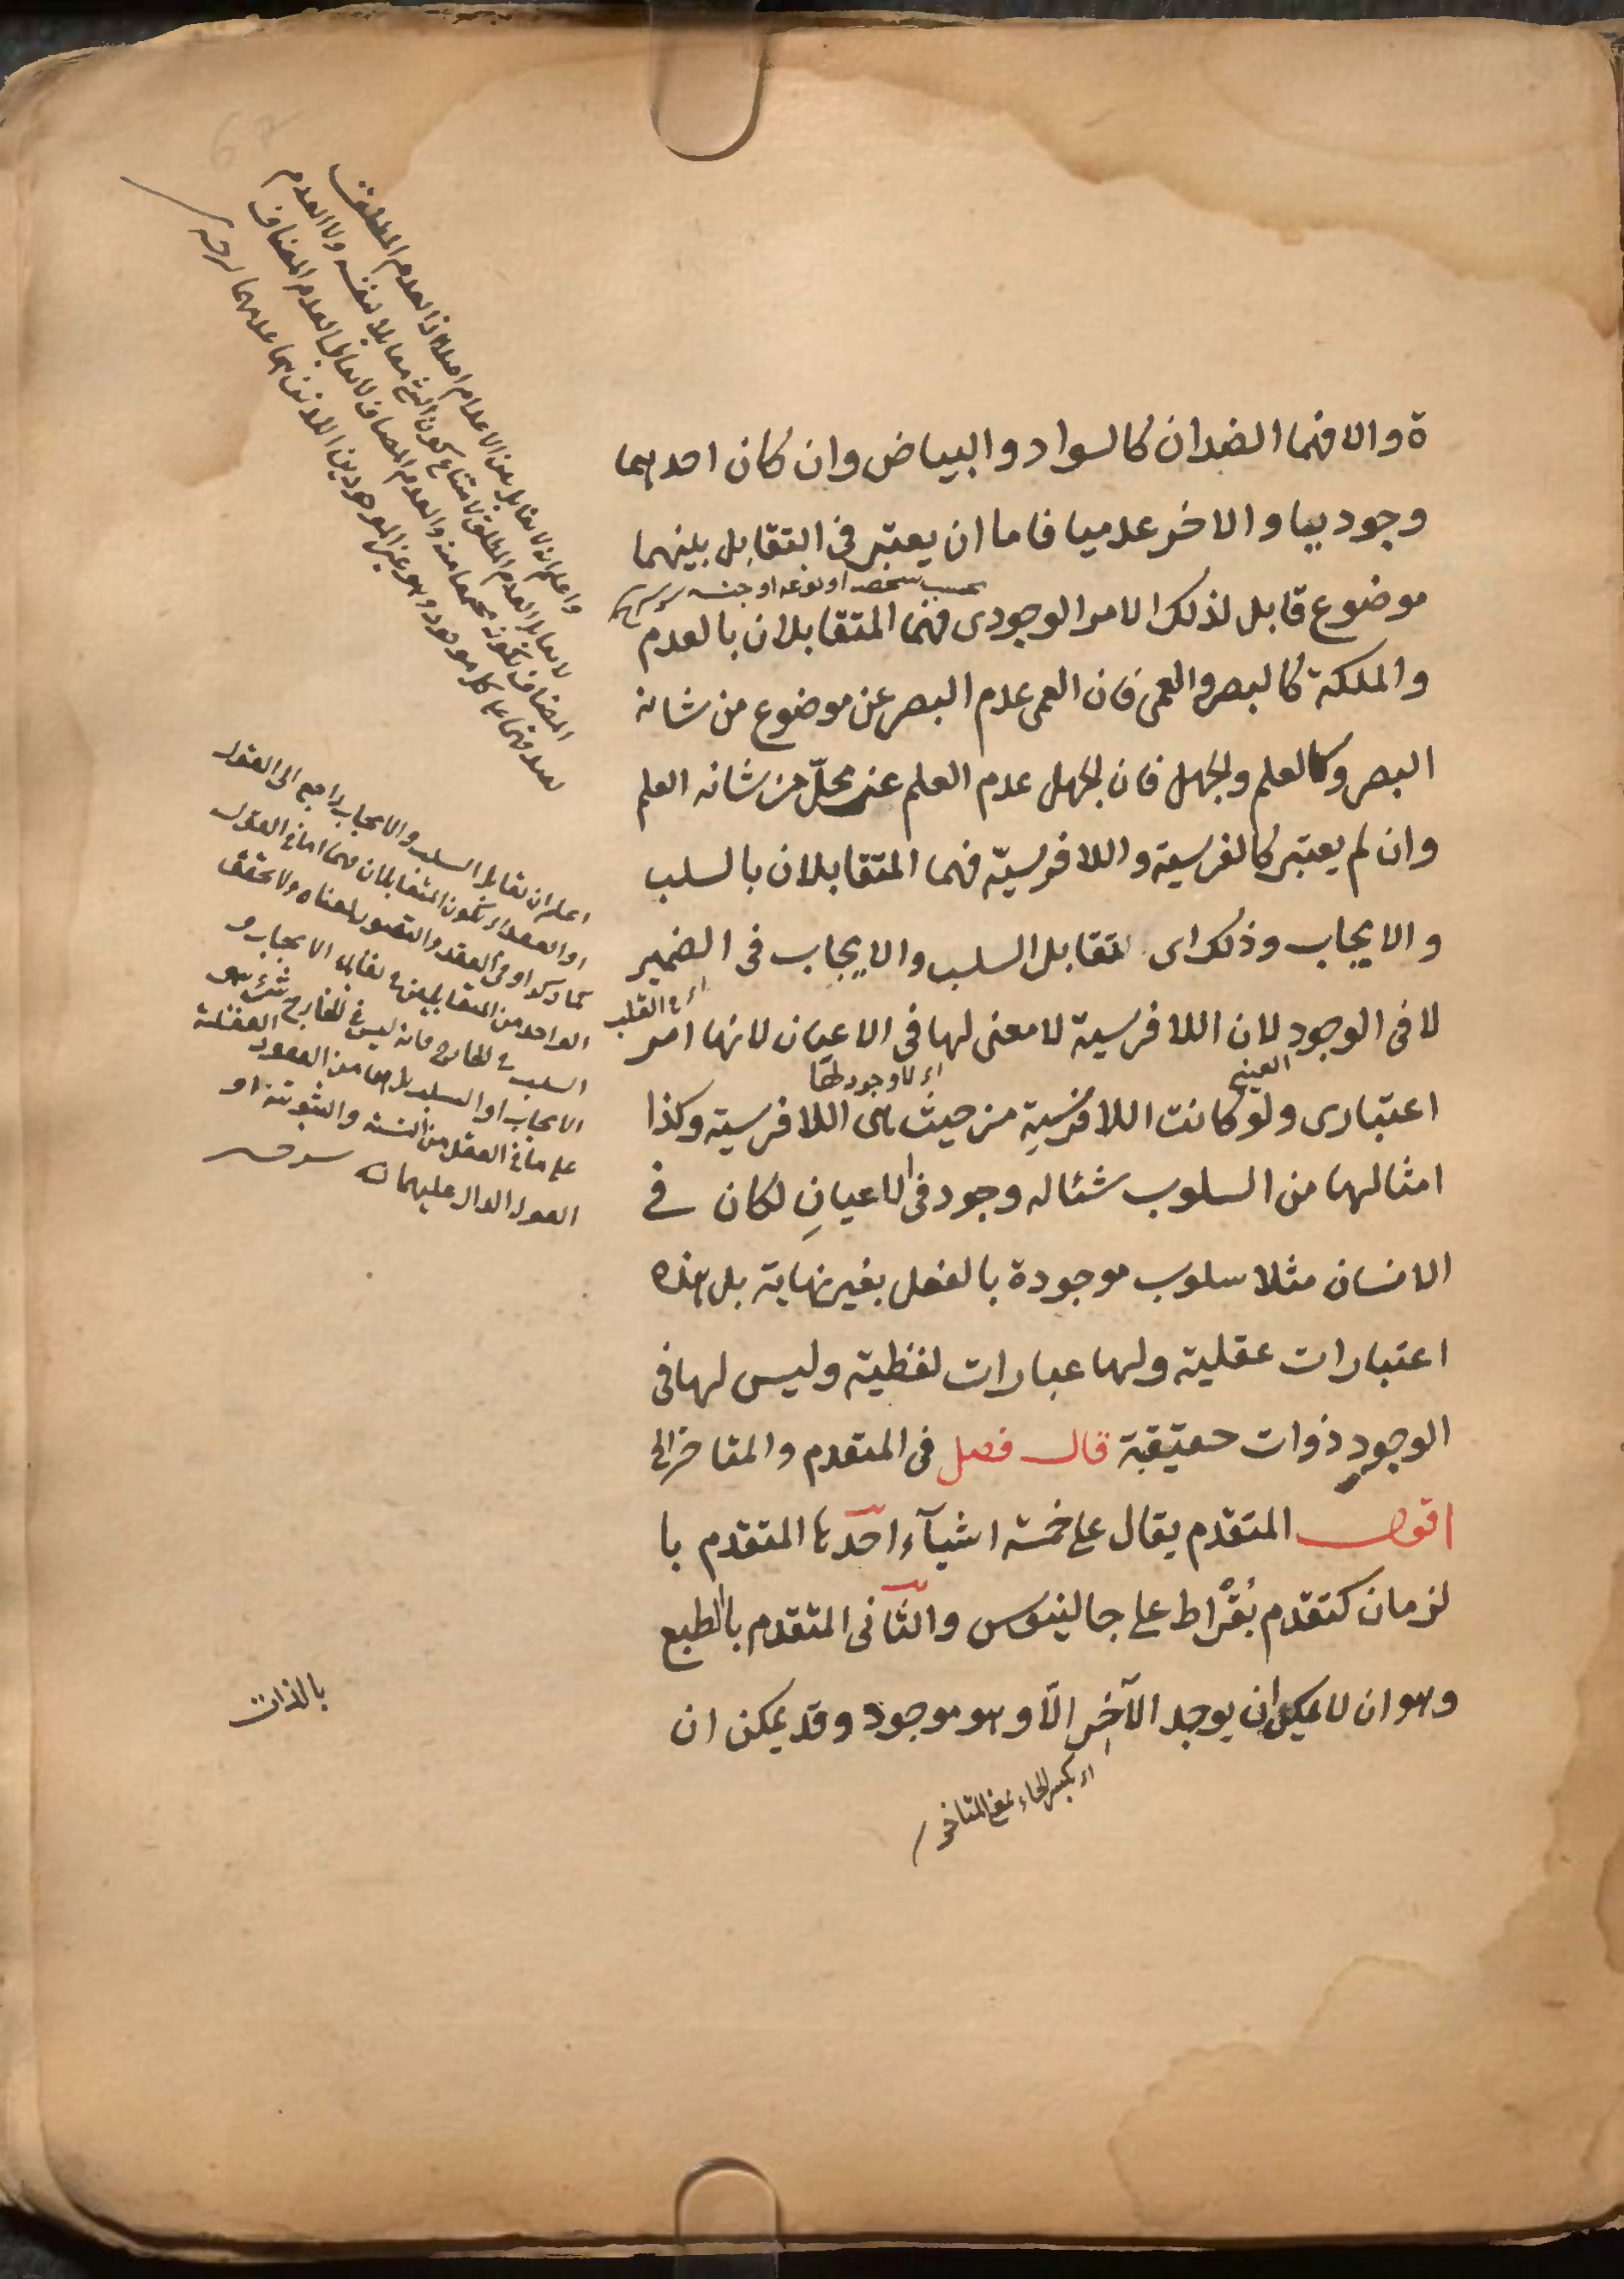 ة والا فهما الضدان كالسواد والبياض وان كان احدهما
وجوديا والاخر عدميا فاما ان يعتبر فى التقابل بينهما
بحسب شخصه او نوعه او جنسه
موضوع قابل لذلك الامر الوجودى فهما المتقابلان بالعدم
والملكة كالبصر والعمى فان العمى عدم البصر عن موضوع من شانه
البصر وكالعلم والجهل فان الجهل عدم العلم عن محلّ من شانه العلم
وان لم يعتبر كالفرسية واللافرسيّة فهما المتقابلان بالسلب
والايجاب وذلك اى تقابل السلب والايجاب فى الضمير
اى فى القلب
لا فى الوجود لان اللافرسية لا معنى لها فى الاعيان لانها امر
العينى
اى لا وجود لها
اعتبارى ولو كانت اللافرسية من حيث هى اللافرسية وكذا
امثالها من السلوب شئا له وجود فى الاعيانِ لكان فى
الانسان مثلا سلوب موجودة بالفعل بغير نهاية بل هذه
اعتبارات عقلية ولها عبارات لفظية وليس لها فى
الوجود ذوات حقيقية قال فصل فى المتقدم والمتاخر الى
اقول المتقدم يقال على خمسة اشيآء احدها المتقدم با
لزمان كتقدم بُقْراط على جالينوس والثانى المتقدم بالطبع
وهو ان لا يمكن ان يوجد الآخِر الّا وهو موجود وقد يمكن ان
اى بكسر الخاء بمعنى المتاخر
بالذات
واعلم انه لا تقابل بين الاعدام اصلا اذ العدم المطلق
لا يقابل العدم المطلق لامتناع كون الشئ مقابلا لنفسه ولا العدم
المضاف لكونه مجتمعا معه والعدم المضاف لا يقابل العدم المضاف
لصدقهما على كل موجود وهو غير الموجودين اللذين هما عدمهما
اعلم ان تقابل السلب والايجاب راجع الى القول
او العقد اى يكون المتقابلان فهما اما فى القول
كما ذكر او فى العقد والتصور لمعناه ولا تحقق
الواحد من المتقابلين فى تقابل الايجاب و
السلب فى الخارج فانه ليس فى الخارج شئ هو
الايجاب او السلب بل هما من العقود العقلية
على ما فى العقل من النسبة والثبوتية او
القول الدال عليهما